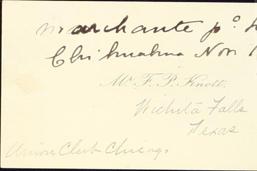 marchante pº
Chihuahua Nov 1
Mr. F. P. Knott.
Wichita Falls
Texas
Union Club Chicago